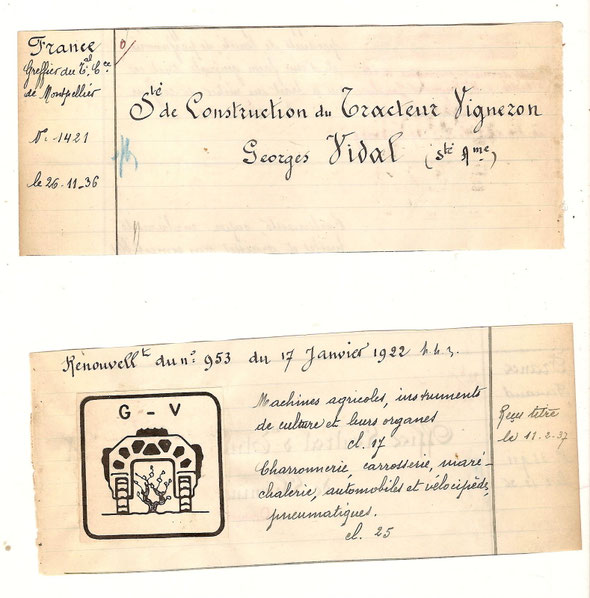 France
Greffier du Tal Cce
de Montpellier
N° 1421
le 26-11-36
Sté de Construction du Tracteur Vigneron
Georges Vidal (Sté Ame)
Renouvellt du n° 953 du 17 Janvier 1922
G - V
Machines agricoles, instruments
de culture et leurs organes
cl. 17
Charronnerie, carrosserie, maré-
chalerie, automobiles et vélocipèdes,
pneumatiques.
cl. 25
Reçu titre
le 11-2-37